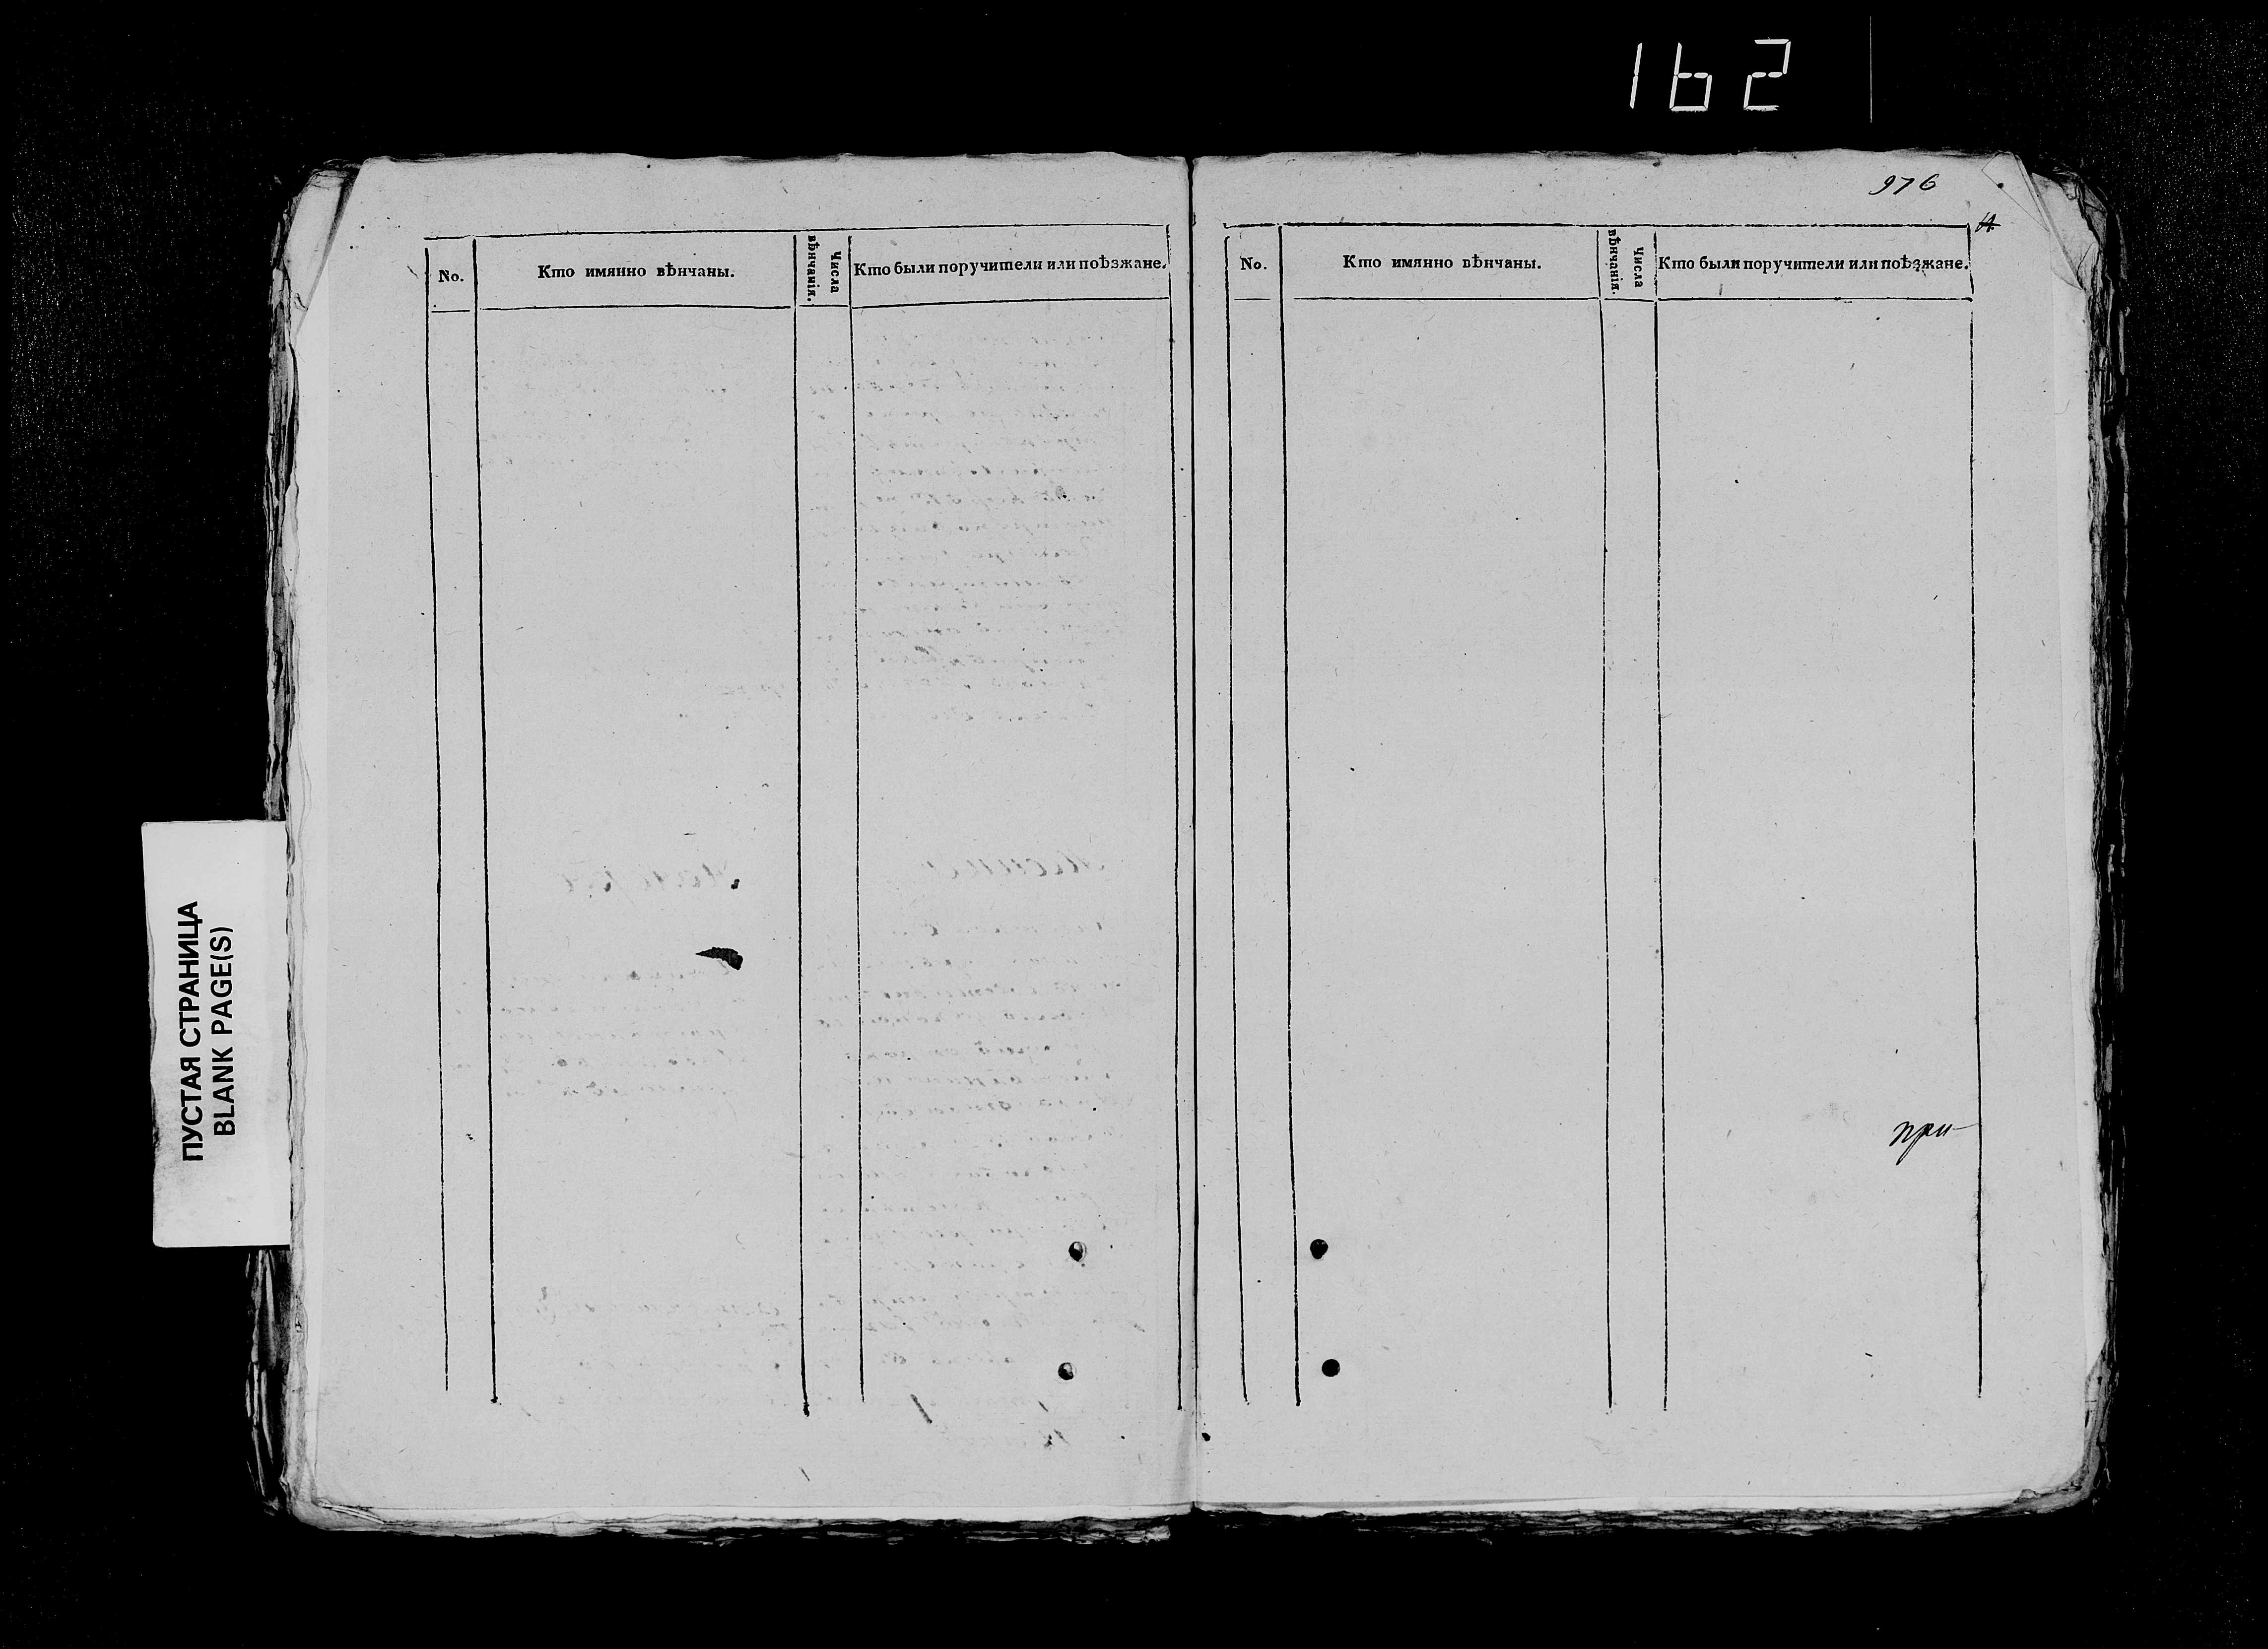 162
976
No.
Кто имянно вѣнчаны.
Числа
вѣнчанія.
Кто были поручители или поѣзжане.
No.
Кто имянно вѣнчаны.
Числа
вѣнчанія.
Кто были поручители или поѣзжане.
при-
ПУСТАЯ СТРАНИЦА
BLANK PAGE(S)